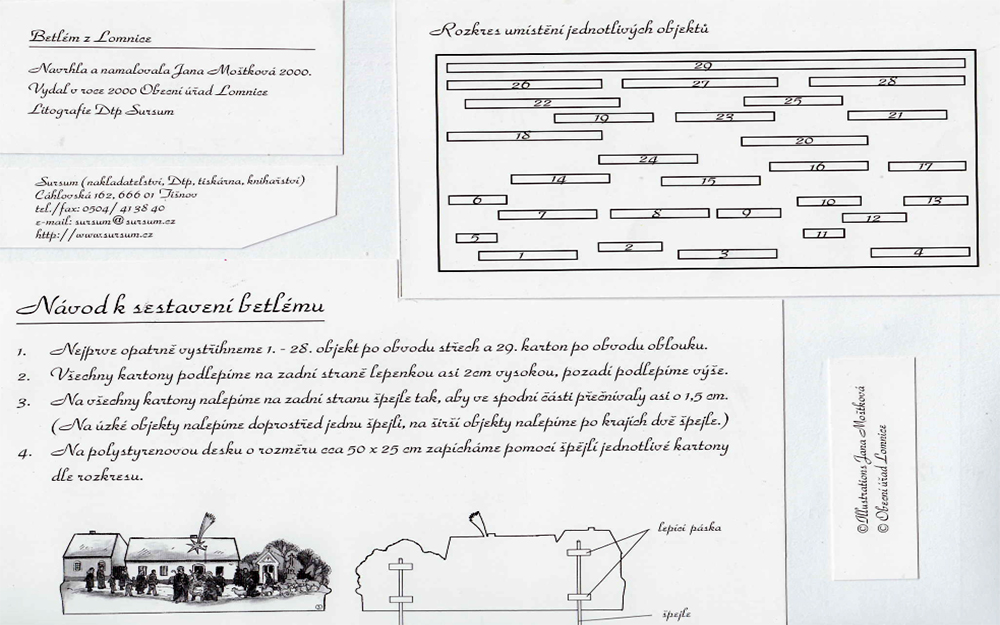 Betlém z Lomnice
Navrhla a namalovala Jana Moštková 2000.
Vydal v roce 2000 Obecní úřad Lomnice
Litografie Dtp Sursum
Sursum (nakladatelství, Dtp, tiskárna, knihařství)
Cáhlovská 162, 666 01 Tišnov
tel./fax: 0504/ 41 38 40
e-mail: sursum@sursum.cz
http://www.sursum.cz
Rozkres umístění jednotlivých objektů
29
26 27 28
22 25
19 23 21
18 20
24 16 17
14 15
6 10 13
7 8 9 12
5 11
1 2 3 4
Návod k sestavení betlému
1. Nejprve opatrně vystřihneme 1. - 28. objekt po obvodu střech a 29. karton po obvodu oblouku.
2. Všechny kartony podlepíme na zadní straně lepenkou asi 2cm vysokou, pozadí podlepíme výše.
3. Na všechny kartony nalepíme na zadní stranu špejle tak, aby ve spodní části přečnívaly asi o 1,5 cm.
(Na úzké objekty nalepíme doprostřed jednu špejli, na širší objekty nalepíme po krajích dvě špejle.)
4. Na polystyrenovou desku o rozměru cca 50 x 25 cm zapícháme pomocí špějlí jednotlivé kartony
dle rozkresu.
lepicí páska
špejle
©Illustrations Jana Moštková
© Obecní úřad Lomnice